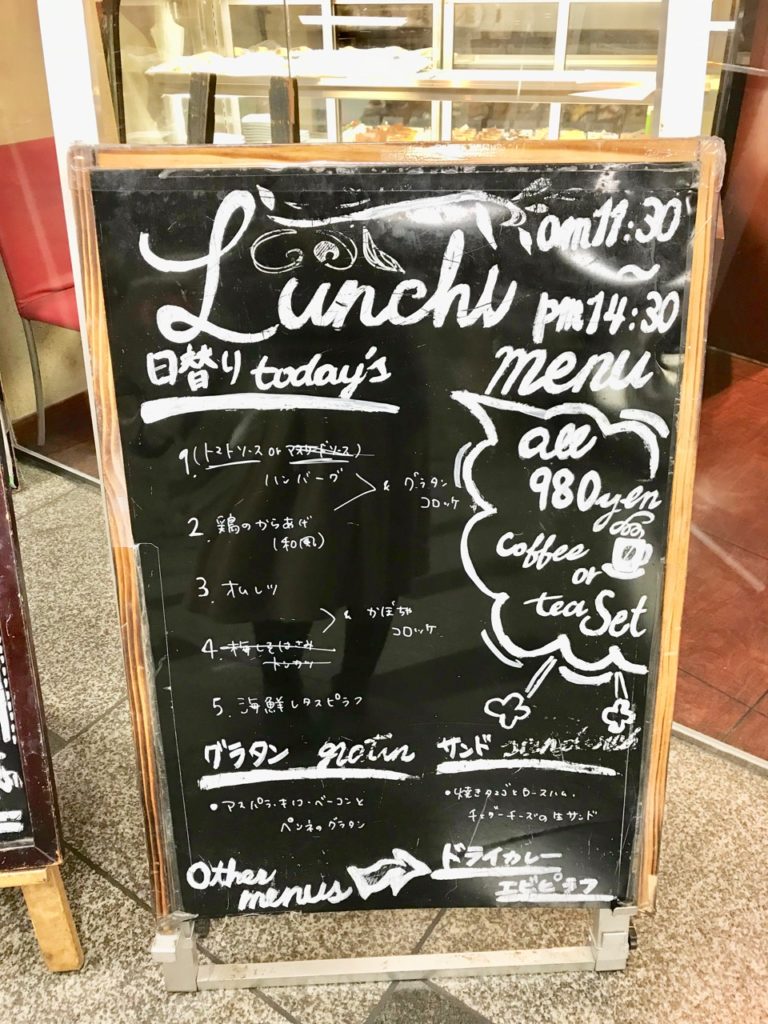 Lunch
am11:30
~
pm14:30
menu
日替り today's
1(トマトソース or マスタードソース)
ハンバーグ
& グラタン
コロッケ
2. 鶏のからあげ
(和風)
3. オムレツ
& かぼちゃ
コロッケ
4. 梅しそはさみ
トンカツ
5. 海鮮レタスピラフ
all
980yen
coffee
or
tea Set
グラタン gratin
• アスパラ・キノコ・ベーコンと
ペンネのグラタン
サンド sandwich
• 焼きタマゴとロースハム、
チェダーチーズの生サンド
Other
menus
ドライカレー
エビピラフ